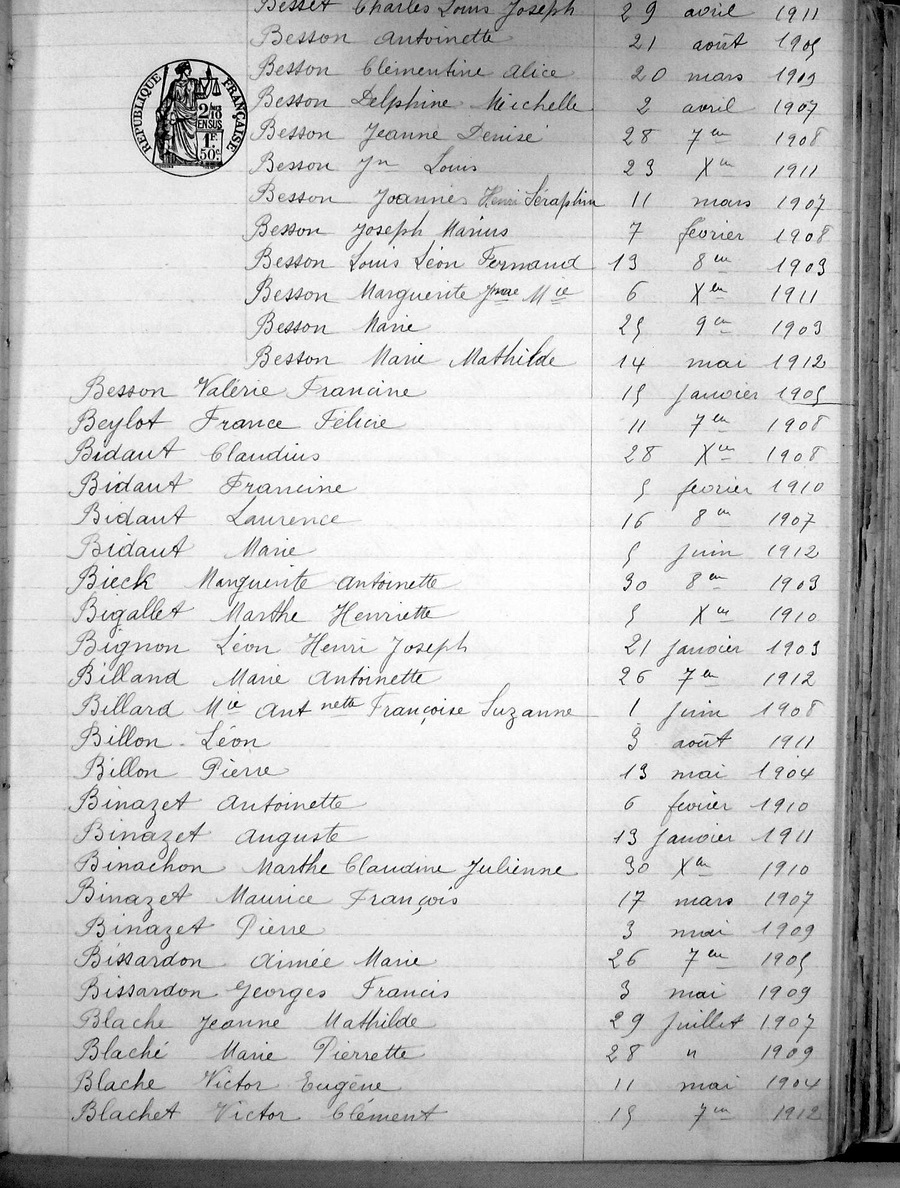 Besset Charles Louis Joseph 29 avril 1911
Besson Antoinette 21 août 1905
Besson Clémentine Alice 20 mars 1909
Besson Delphine Michelle 2 avril 1907
Besson Jeanne Denise 28 7bre 1908
Besson Jn Louis 23 Xbre 1911
Besson Joannès Henri Séraphin 11 mars 1907
Besson Joseph Marius 7 février 1908
Besson Louis Léon Fernand 13 8bre 1903
Besson Marguerite Jnne Mie 6 Xbre 1911
Besson Marie 25 9bre 1903
Besson Marie Mathilde 14 mai 1912
Besson Valérie Francine 15 janvier 1905
Beylot France Félicie 11 7bre 1908
Bidaut Claudius 28 Xbre 1908
Bidaut Francine 5 février 1910
Bidaut Laurence 16 8bre 1907
Bidaut Marie 5 juin 1912
Bieck Marguerite Antoinette 30 8bre 1903
Bigallet Marthe Henriette 5 Xbre 1910
Bignon Léon Henri Joseph 21 janvier 1903
Billand Marie Antoinette 26 7bre 1912
Billard Mie Antnette Françoise Suzanne 1 juin 1908
Billon Léon 3 août 1911
Billon Pierre 13 mai 1904
Binazet Antoinette 6 février 1910
Binazet Auguste 13 janvier 1911
Binachon Marthe Claudine Julienne 30 Xbre 1910
Binazet Maurice François 17 mars 1907
Binazet Pierre 3 mai 1909
Bissardon Aimée Marie 26 7bre 1905
Bissardon Georges Francis 3 mai 1909
Blache Jeanne Mathilde 29 juillet 1907
Blaché Marie Pierrette 28 " 1909
Blache Victor Eugène 11 mai 1904
Blachet Victor Clément 15 7bre 1912
RÉPUBLIQUE FRANÇAISE
2/10
EN SUS
1F.
50c.